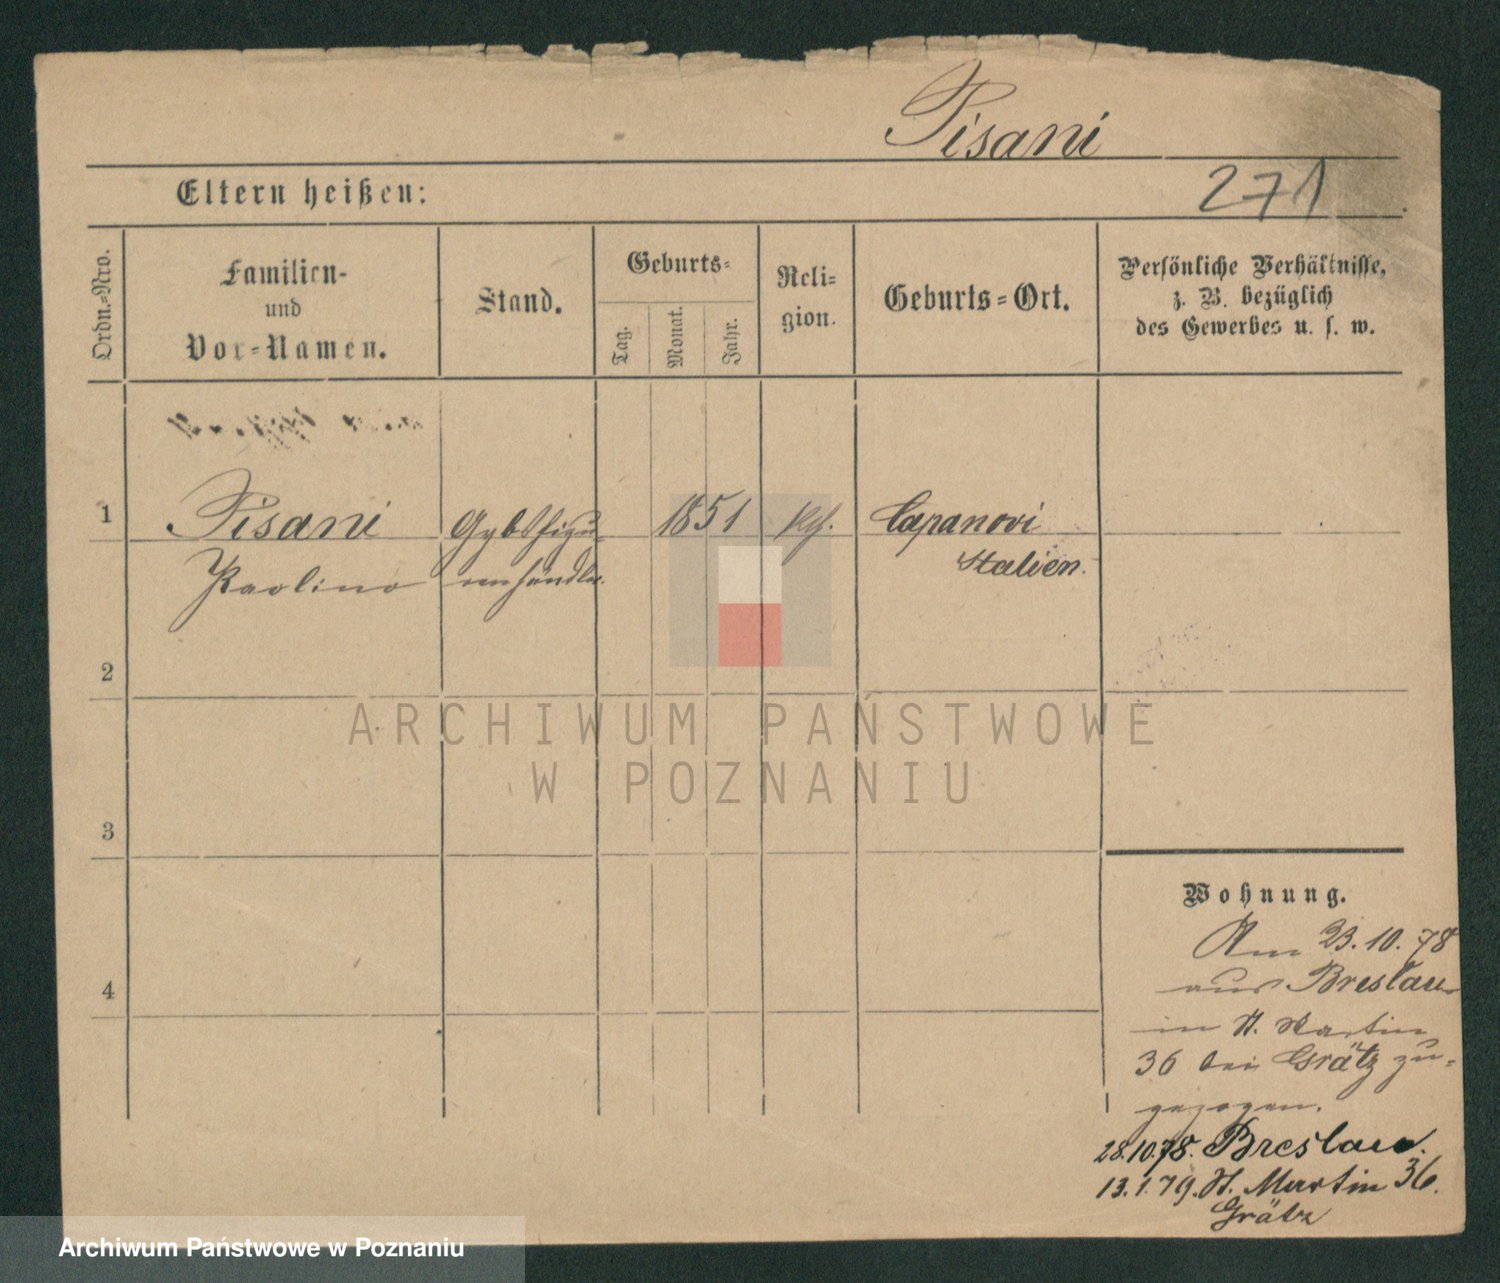 Pisani
271
Eltern heißen:
Ordn.=Nro.
Familien-
und
Vor=Namen.
Stand.
Geburts=
Tag.
Monat.
Jahr.
Reli=
gion.
Geburts=Ort.
Persönliche Verhältnisse,
z. B. bezüglich
des Gewerbes u. s. w.
1
Pisani
Paolino
Gypsfigu
renhändler.
1851
kth.
Capanovi
Italien.
2
3
4
ARCHIWUM PAŃSTWOWE
W POZNANIU
Wohnung.
Am 23.10.78
aus Breslau
in St. Martin
36 bei Grätz zu=
gezogen.
28.10.78. Breslau.
13.1.79. St. Martin 36.
Grätz
Archiwum Państwowe w Poznaniu